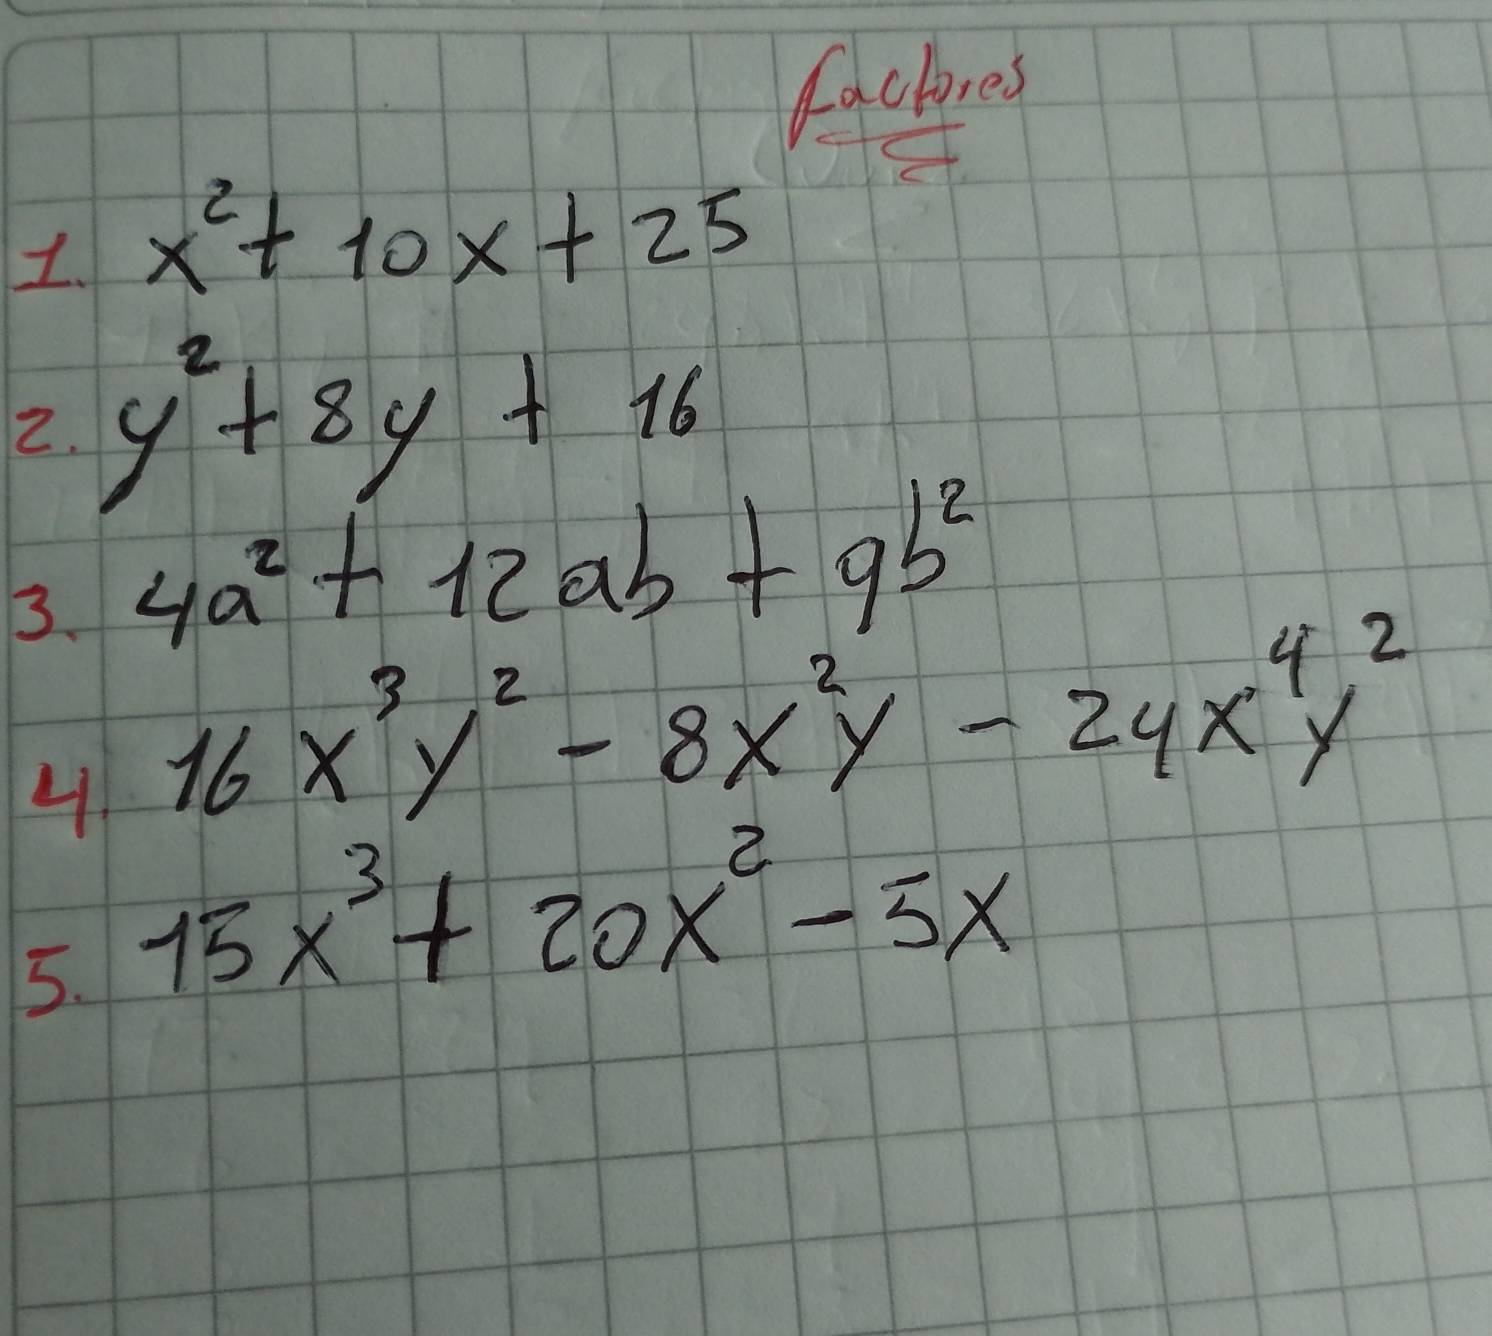 Factores
1. x² + 10x + 25
2. y² + 8y + 16
3. 4a² + 12ab + 9b²
4. 16x³y² - 8x²y - 24x⁴y²
5. 15x³ + 20x² - 5x